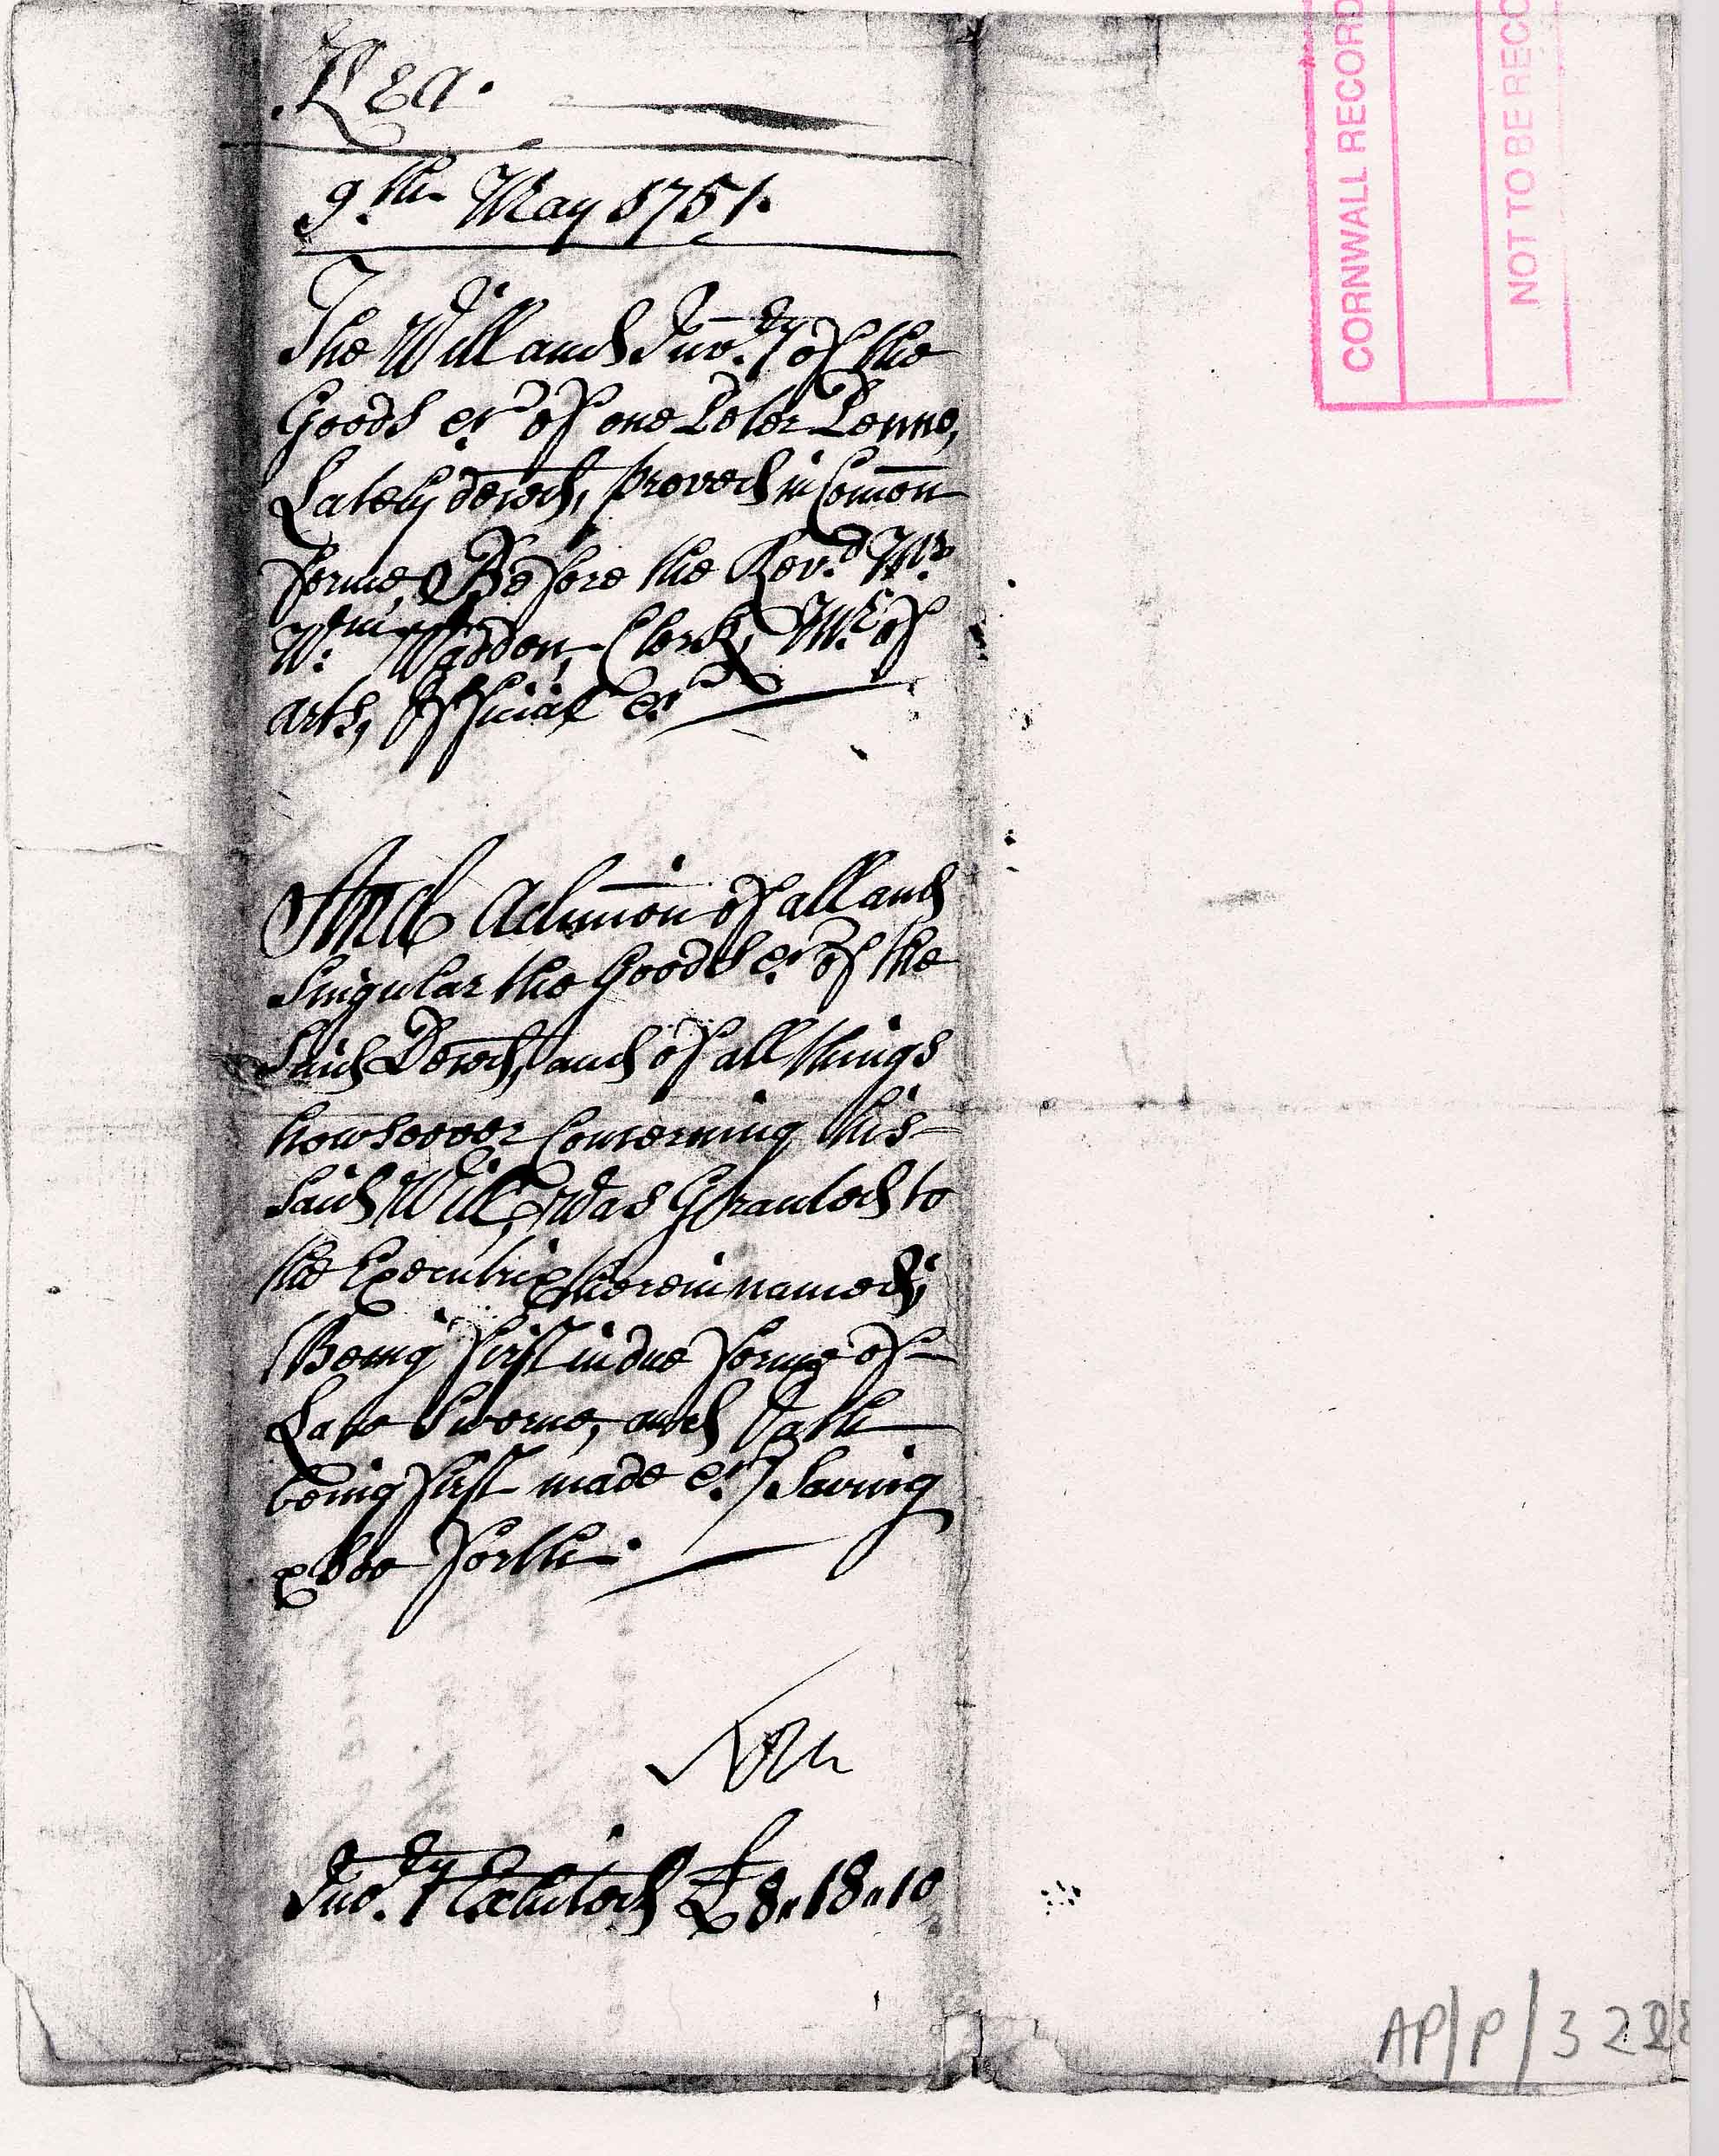 .Kea.
9.th May 1751.
The Will and Inv.ry of the
Goods &c of one Peter Penne,
Lately deced, proved in Comon
forme, Before the Rev.d Mr
W.m Waddon, Clerk, Mr of
arts, Official &c
And Admon of all and
Singular the Goods &c of the
Said Deced, and of all things
howsoever Concerning this
Said Will, was Granted to
the Executrix therein named;
Being first in due forme of
Law Sworne, and Oath
being first made &c, Saving
& soo forth.
Inv.ry Exhibited £8"18"10
CORNWALL RECORD
NOT TO BE RECO
AP/P/322